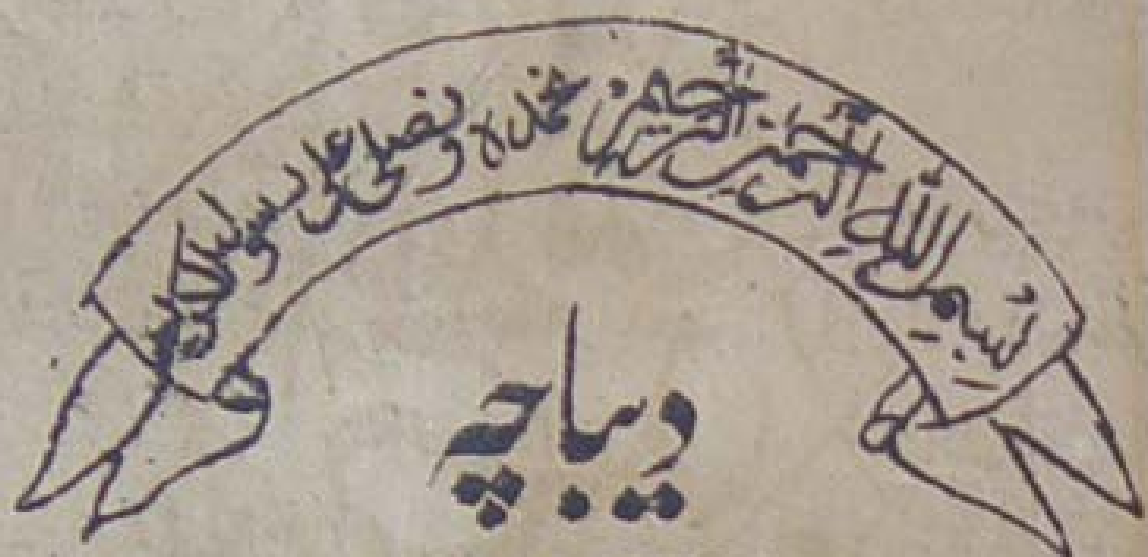 بِسْمِ اللهِ الرَّحْمٰنِ الرَّحِيْمِ نحمدہ ونصلی علی رسولہ الکریم
دیباچہ